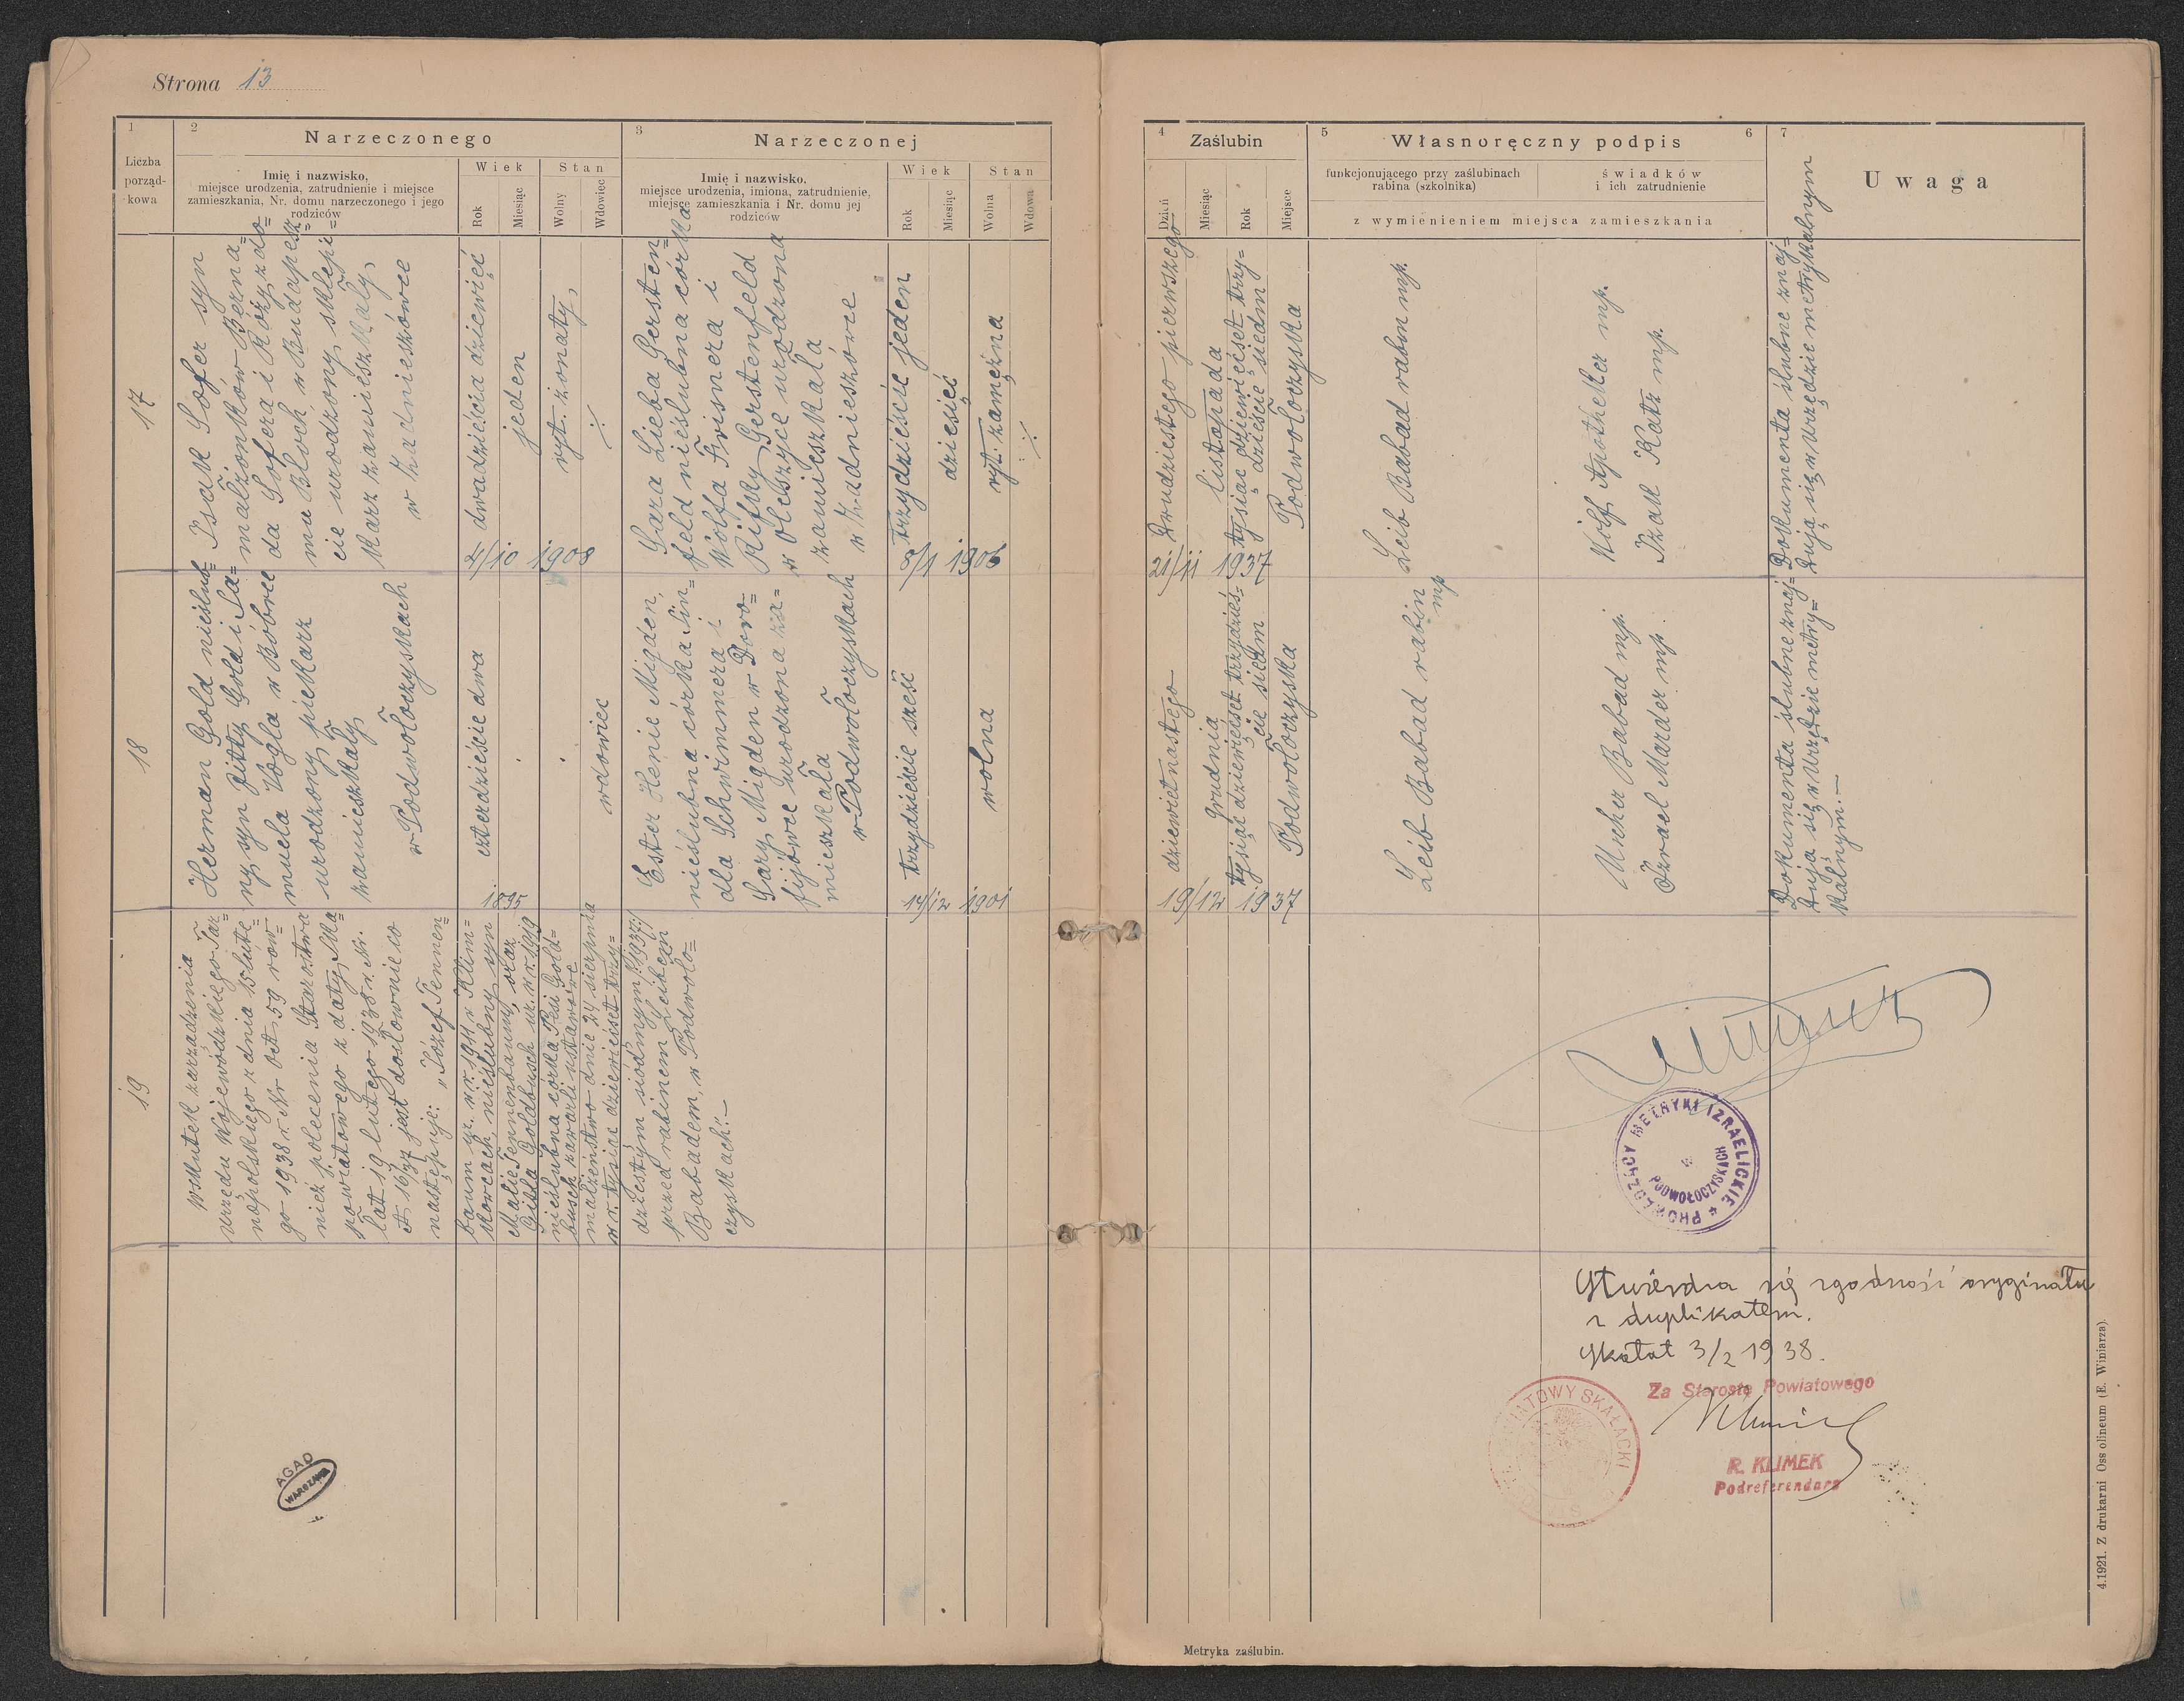 Strona 13
1
Liczba
porząd-
kowa
2
Narzeczonego
Imię i nazwisko,
miejsce urodzenia, zatrudnienie i miejsce
zamieszkania, Nr. domu narzeczonego i jego
rodziców
Wiek
Rok
Miesiąc
Stan
Wolny
Wdowiec
3
Narzeczonej
Imię i nazwisko,
miejsce urodzenia, imiona, zatrudnienie,
miejsce zamieszkania i Nr. domu jej
rodziców
Wiek
Rok
Miesiąc
Stan
Wolna
Wdowa
4
Zaślubin
Dzień
Miesiąc
Rok
Miejsce
5
Własnoręczny podpis
6
funkcjonującego przy zaślubinach
rabina (szkolnika)
świadków
i ich zatrudnienie
z wymienieniem miejsca zamieszkania
7
Uwaga
17
Isak Sofer syn
małżonków Berna=
da Sofera i Róży z do=
mu Bloch w Budapesz=
cie urodzony sklepi=
karz zamieszkały,
w Zadnieszówce
dwadzieścia dziewięć
jeden
ryt. żonaty,
4/10 1908
Sara Lieba Gersten=
feld nieślubna córka
Wolfa Frismera i
Rifky Gerstenfeld
w Oleszyce urodzona
zamieszkała
w Zadnieszówce
trzydzieście jeden
dziesięć
ryt. zamężna
8/1 1906
Drudziestego pierwszego
listopada
tysiąc dziewięćset trzy=
dzieście siedm
Podwołoczyska
21/11 1937
Leib Babad rabin mp.
Wolf Apotheker mp.
Izak Katz mp.
Dokumenta ślubne znaj=
dują się w Urzędzie metrykalnym
18
Herman Gold nieślub=
ny syn Gitty Gold i Sa=
muela Vogla w Bobrce
urodzony piekarz
zamieszkały
w Podwołoczyskach
czterdzieście dwa
wdowiec
1895
Ester Henie Migden,
nieślubna córka Sin=
dla Schwimmera i
Sary Migden w Doro=
fijówce urodzona za=
mieszkała
w Podwołoczyskach
trzydzieście sześć
wolna
14/12 1901
dziewiętnastego
grudnia
tysiąc dziewięćset trzydzieś=
cie siedm
Podwołoczyska
19/12 1937
Leib Babad rabin
mp
Uscher Babad mp.
Izrael Marder mp.
Dokumenta ślubne znaj=
dują się w Urzędzie metry=
kalnym.—
19
Wskutek zarządzenia
Urzędu Wojewódzkiego Tar=
nopolskiego z dnia 15 lute=
go 1938 r. Nr. Oct. 59 rów=
nież polecenia Starostwa
powiatowego z daty Ska=
łat 19 lutego 1938 r. Nr.
A 16/37 jest dosłownie co
następuje: „Józef Tennen=
baum ur. w r. 1911 w Klim=
kowcach, nieślubny syn
Malie Tennenbaumy, oraz
Gitla Goldbusch ur. w r. 1919
nieślubna córka Pesi Gold=
busch zawarli ustawowe
małżeństwo dnie 24 sierpnia
w r. tysiąc dziewięćset trzy=
dziestym siódmym /:1937:/
przed rabinem Leibem
Babadem, w Podwoło=
czyskach".—
PROWADZĄCY METRYKI IZRAELICKIE
PODWOŁOCZYSKACH
Stwierdza się zgodność oryginału
z duplikatem.
Skałat 3/2 1938.
Za Starostę Powiatowego
POWIATOWY SKAŁACKI
R. KLIMEK
Podreferendarz
AGAD
WARSZAWA
Metryka zaślubin.
4.1921. Z drukarni Ossolineum (E. Winiarza).